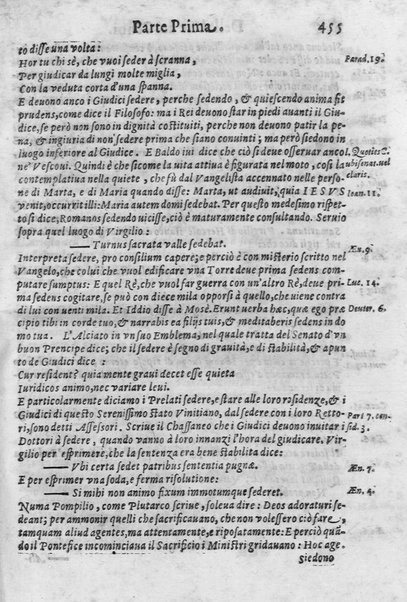 Parte Prima. 455
to disse una volta:
Hor tu chi sè, che vuoi seder à scranna, Parad. 19.
Per giudicar da lungi molte miglia,
Con la veduta corta d'una spanna.
E devono anco i Giudici sedere, perche sedendo, & quiescendo anima fit
prudens, come dice il Filosofo: ma i Rei devono star in piedi avanti il Giu-
dice, se però non sono in dignità costituiti, perche non devono patir la pe-
na, & ingiuria di non sedere prima che siano conuinti; ma però siedono in
luogo inferiore al Giudice. E Baldo ivi dice che ciò si deve osservar ancol. Quoties C.
ne' Vescoui. Quindi è che sicome la vita attiua è figurata nel moto, così la ubi senat. uel
contemplatiua nella quiete, che fù dal Vangelista accennato nelle perso- claris.
ne di Marta, e di Maria quando disse: Marta, ut audiuit, quia IESVS Ioan. 11.
venit, occurrit illi: Maria autem domi sedebat. Per questo medesimo rispet-
to si dice, Romanos sedendo uicisse, ciò è maturamente consultando. Seruio
sopra quel luogo di Virgilio:
—— Turnus sacrata valle sedebat. Æn. 9.
Interpreta sedere, pro consilium capere; e perciò è con misterio scritto nel
Vangelo, che colui che vuol edificare vna Torre deue prima sedens com-
putare sumptus: E quel Rè, che vuol far guerra con un'altro Rè, deue pri- Luc. 14.
ma sedens cogitare, se può con diece mila opporsi à quello, che uiene contra
di lui con uenti mila. Et Iddio disse à Mosè. Erunt uerba hæc, quæ ego præ Deuter. 6.
cipio tibi in corde tuo, & narrabis ea filijs tuis, & meditaberis sedens in do
mo tua. L'Alciato in vn suo Emblema, nel quale tratta del Senato d'vn
buon Prencipe dice; che il sedere è segno di grauità, e di stabilità, & apun
to de Giudici dice:
Cur resident? quia mente graui decet esse quieta
Iuridicos animo, nec variare leui.
E particolarmente diciamo i Prelati sedere, e stare alle loro residenze, & i
Giudici di questo Serenissimo stato Vinitiano, dal sedere con i loro Retto- Par. 7. con-
ri, sono detti Assessori. Scriue il Chassaneo che i Giudici deuono inuitar i sid. 3.
Dottori à sedere, quando vanno à loro innanzi l'hora del giudicare. Vir-
gilio per esprimere, che la sentenza era bene stabilita dice:
—— Vbi certa sedet patribus sententia pugnæ. Æn. 7.
E per esprimer vna soda, e ferma risolutione:
—— Si mihi non animo fixum immotumque sederet. Æn. 4.
Numa Pompilio, come Plutarco scriue, soleua dire: Deos adoraturi se-
deant; per ammonir quelli che sacrificauano, che non volessero ciò fare,
tamquam aliud agentes, ma attentamente, e riposatamente: E perciò quã
do il Pontefice incominciaua il Sacrificio i Ministri gridauano: Hoc age.
siedono